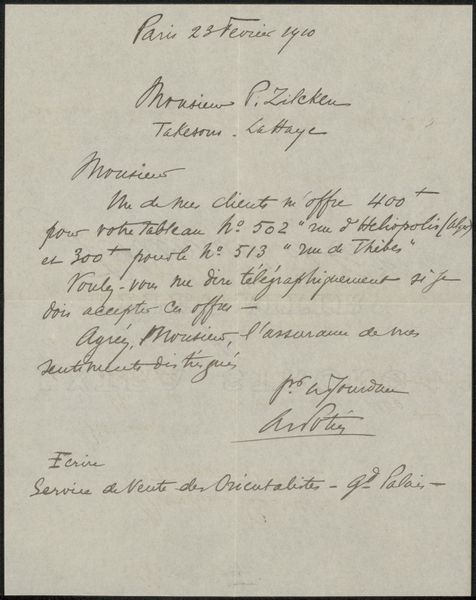 Paris 23 Fevrier 1910
Monsieur P. Zilcken
La Haye
Monsieur
Un de mes clients m'offre 400 f
pour votre tableau No. 502 "rue d'Heliopolis (Alger)
et 300 f pour le No. 513 "rue de Thèbes"
Voulez-vous me dire télégraphiquement si je
dois accepter ces offres —
Agréez, Monsieur, l'assurance de mes
sentiments distingués
pr Jourdan
Ecrire
Service de Vente des Orientalistes — Gd Palais —